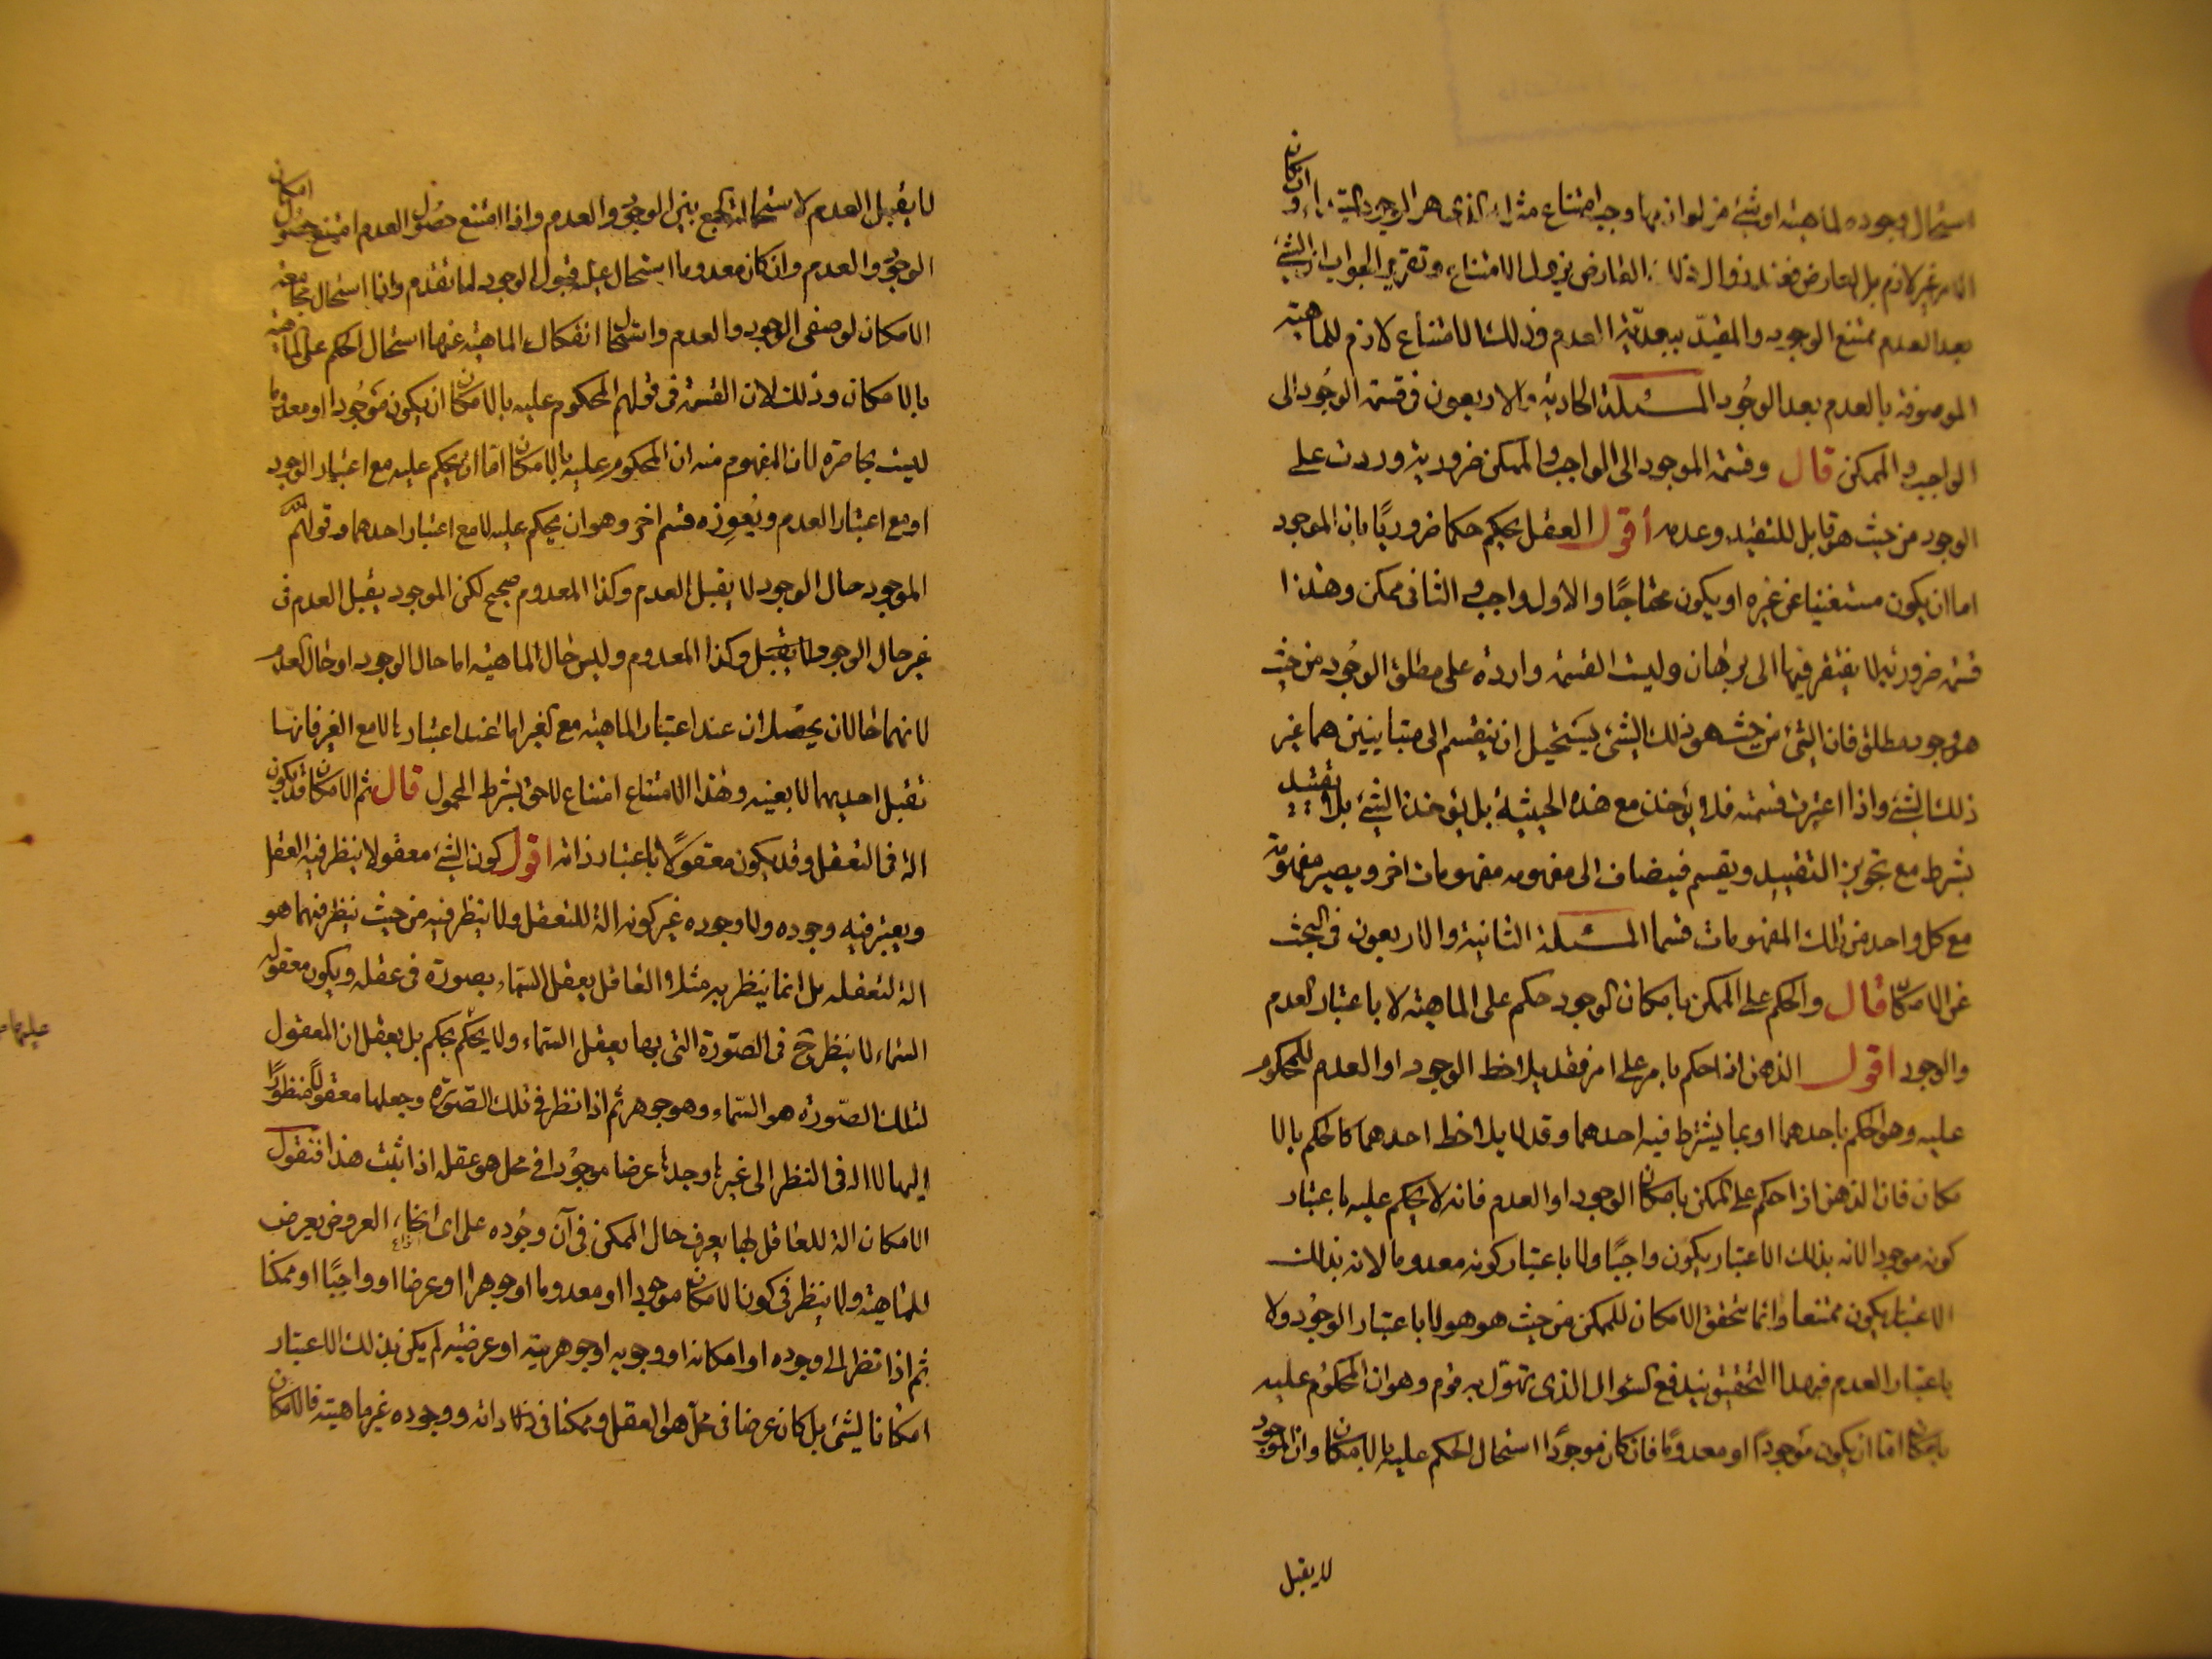 استحال وجوده لماهيته او شئ من لوازمها وجب امتناع مثله الذى هو الوجود وان كان
الامر غير لازم بل لعارض فعند زوال ذلك العارض يزول الامتناع وتقرير الجواب ان الشئ
بعد العدم ممتنع الوجود والمقيد ببعدية العدم وذلك الامتناع لازم للماهية
الموصوفة بالعدم بعد الوجود المسئلة الحادية والاربعون فى قسمة الوجود الى
الواجب والممكن قال وقسمة الموجود الى الواجب والممكن ضرورية وردت على
الوجود من حيث هو قابل للتقييد وعدمه أقول العقل يحكم حكما ضروريا بان الموجود
اما ان يكون مستغنيا عن غيره او يكون محتاجا والاول واجب والثانى ممكن وهذا
قسمة ضرورية لا يفتقر فيها الى برهان وليست القسمة واردة على مطلق الوجود من حيث
هو وجود مطلق فان الشئ من حيث هو ذلك الشئ يستحيل ان ينقسم الى متباينين هما غير
ذلك الشئ واذا اعتبرت قسمته فلا يؤخذ مع هذه الحيثية بل يؤخذ الشئ بلا تقييد
بشرط مع تجويز التقييد ويقسم فينضاف الى مفهومه مفهومات اخر ويصير مفهومه
مع كل واحد من تلك المفهومات قسما المسئلة الثانية والاربعون فى البحث
عن الامكان قال والحكم على الممكن بامكان الوجود حكم على الماهية لا باعتبار العدم
والوجود اقول الذهن اذا حكم بامر على امر فقد يلاحظ الوجود او العدم للمحكوم
عليه وهو الحكم باحدهما او بما يشترط فيه احدهما وقد لا يلاحظ احدهما كالحكم بالا
مكان فان الذهن اذا حكم على الممكن بامكان الوجود او العدم فانه لا يحكم عليه باعتبار
كونه موجودا لانه بذلك الاعتبار يكون واجبا ولا باعتبار كونه معدوما لانه بذلك
الاعتبار يكون ممتنعا وانما يتحقق الامكان للممكن من حيث هو هو لا باعتبار الوجود ولا
باعتبار العدم فبهذا التحقيق يندفع السؤال الذى تهول به قوم وهو ان المحكوم عليه
بامكان اما ان يكون موجودا او معدوما فان كان موجودا استحال الحكم عليه بالامكان وان الموجود
لا يقبل
لا يقبل العدم لاستحالة الجمع بين الوجود والعدم واذا امتنع حصول العدم امتنع حصول امكان
الوجود والعدم وان كان معدوما استحال عليه قبول الوجود لما تقدم وانما استحال مجامعة
الامكان لوصفى الوجود والعدم واستحال انفكاك الماهية عنهما استحال الحكم على الماهية
بالامكان وذلك لان القسمة فى قولهم المحكوم عليه بالامكان ان يكون موجودا او معدوما
ليست بحاصرة لان المفهوم منه ان المحكوم عليه بالامكان اما ان يحكم عليه مع اعتبار الوجود
او مع اعتبار العدم ويعوزه قسم اخر وهو ان يحكم عليه لا مع اعتبار احدهما وقولهم
الموجود حال الوجود لا يقبل العدم وكذا المعدوم صحيح لكن الموجود يقبل العدم فى
غير حال الوجود وكذا المعدوم وليس حال الماهية اما حال الوجود او حال العدم
لانهما حالان يحصلان عند اعتبار الماهية مع الغير اما عند اعتبارها لا مع الغير فانها
تقبل احديهما لا بعينه وهذا الامتناع امتناع لاحق بشرط المحمول قال ثم الامكان قد يكون
الة فى التعقل وقد يكون معقولا باعتبار ذاته اقول كون الشئ معقولا ينظر فيه العقل
ويعتبر فيه وجوده ولا وجوده غير كونه الة للتعقل ولا ينظر فيه من حيث ينظر فيما هو
الة لتعقله بل انما ينظر به مثلا العاقل يعقل السماء بصورة فى عقله ويكون معقوله
السماء لا ينظر ح فى الصورة التى بها يعقل السماء ولا يحكم بحكم بل يعقل ان المعقول
لتلك الصورة هو السماء وهو جوهر ثم اذا نظر فى تلك الصورة وجعلها معقولا منظورا
اليها لا الة فى النظر الى غيرها وجدها عرضا موجودا فى محل هو عقله اذا ثبت هذا فنقول
الامكان الة للعاقل بها يعرف حال الممكن فى ان وجوده على اى انحاء العروض يعرض
للماهية ولا ينظر فى كون الامكان موجودا او معدوما او جوهرا او عرضا او واجبا او ممكنا
ثم اذا نظر الى وجوده او امكانه او وجوبه او جوهريته او عرضيته لم يكن بذلك الاعتبار
امكانا لشئ بل كان عرضا فى محل هو العقل وممكنا فى ذاته ووجوده غير ماهيته فالامكان